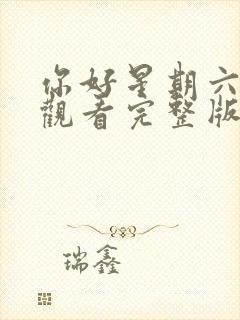 你好星期六
觀看完整版
瑞鑫